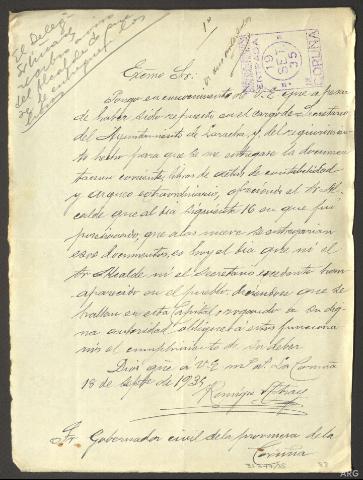 Excmo Sr:
Pongo en conocimiento de V.E. que a pesar
de haber sido repuesto en el cargo de Secretario
del Ayuntamiento de Laracha, y del requerimien
to hecho para que se me entregase la documen
tación corriente, libros de actas de contabilidad
y arqueo extraordinario, ofreciendo el Sr. Al
calde que al día siguiente 16 en que fui
posesionado, que a las nueve se entregarían
esos documentos, es hoy el día que ni el
Sr Alcalde ni el Secretario
aparecido en el pueblo, diciendose que se
hallan en esta Capital, rogando a su dig
na autoridad obligue a estos funciona
rios el cumplimiento de su deber
Dios gue a V.E. m. a. La Coruña
18 de Septbre de 1935
Sr. Gobernador civil de la provincia de la
Coruña
ENTRADA
19 SET 35
CORUÑA
ARG